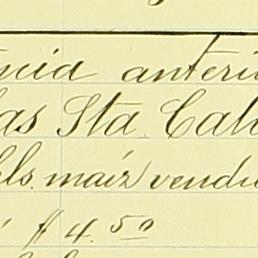 ncia anteri
as Sta Cal
bls. maíz vendi
á $4.50